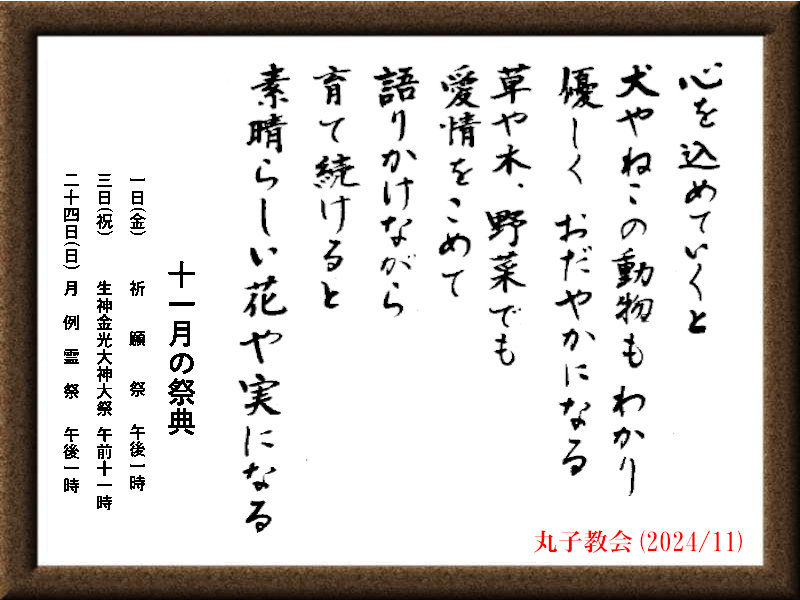 心を込めていくと
犬やねこの動物もわかり
優しくおだやかになる
草や木、野菜でも
愛情をこめて
語りかけながら
育て続けると
素晴らしい花や実になる
十一月の祭典
一日(金) 祈願祭 午後一時
三日(祝) 生神金光大神大祭 午前十一時
二十四日(日) 月例霊祭 午後一時
丸子教会(2024/11)